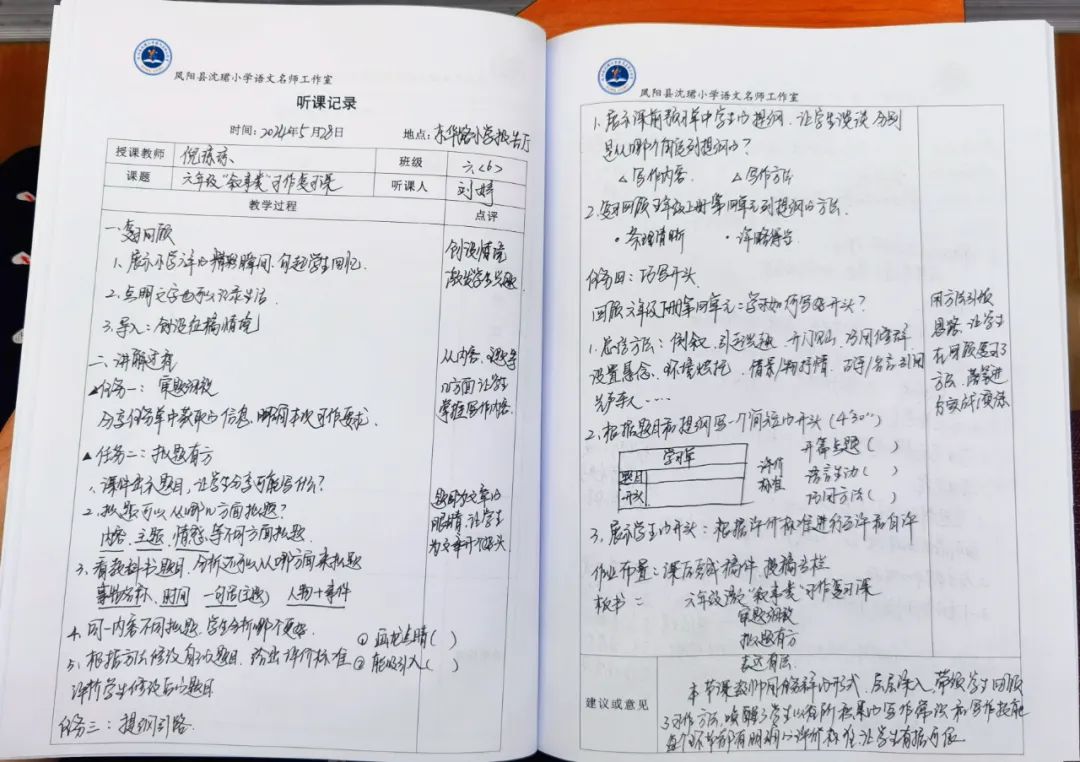 凤阳县沈珺小学语文名师工作室
听课记录
时间：2024年5月28日 地点：东华路小学报告厅
授课教师 倪琼琼 班级 六〈6〉
课题 六年级“叙事类”习作复习课 听课人 刘婷
教学过程 点评
一、复习回顾
1、展示小学六年的精彩瞬间，勾起学生回忆.
2.点明文字也可以记录生活.
3.导入：创设征稿情境
创设情境
激发学生兴趣
二、讲解过程
▲任务一：审题细致
分享任务单中获取的信息，明确本次习作要求.
从内容、
方面让学生
掌握写作内容.
▲任务二：拟题有方
1.课件出示题目，让学生分享可能写什么？
2.拟题可以从哪几方面拟题？
内容、主题、情感等不同方面拟题
3、看教科书题目，分析还可以从哪方面来拟题
事物名称、时间 一句话(主题) 人物+事件
题目为文章的
眼睛，让学生
为文章开个好头.
4.同一内容不同拟题，学生分析哪个更好.
5、根据方法修改自己题目，给出评价标准 ①画龙点睛( )
②能吸引人( )
评析学生修改后的题目
任务三：提纲引路
凤阳县沈珺小学语文名师工作室
1.展示课前预习单中学生的提纲，让学生谈谈分别
是从哪个角度列提纲的？
△写作内容. △写作方法
2.复习回顾五年级上册第四单元列提纲的方法.
·条理清晰 ·详略得当
任务四：巧写开头
回顾六年级下册第四单元：学习如何写好开头？
1.总结方法：倒叙、引起兴趣、开门见山、巧用修辞、
设置悬念、环境烘托、情景/物抒情、古诗/名言引用
先声夺人……
用方法引领
思路，让学生
在回顾复习了
方法，落笔进
行实战演练
2.根据题目和提纲写一个简短的开头（4'30''）
学习单
题目
开头
评价
标准
开篇点题( )
语言生动( )
巧用方法( )
3.展示学生的开头：根据评价标准进行互评和自评
作业布置：课后完成稿件，投稿专栏
板书： 六年级语文“叙事类”习作复习课
审题细致
拟题有方
表达有法.
建议或意见
本节课教师用任务群的形式，层层深入，带领学生回顾
了习作方法，唤醒了学生以前所积累的写作常识和写作技能
每个环节都有明确的评价标准让学生有据可依